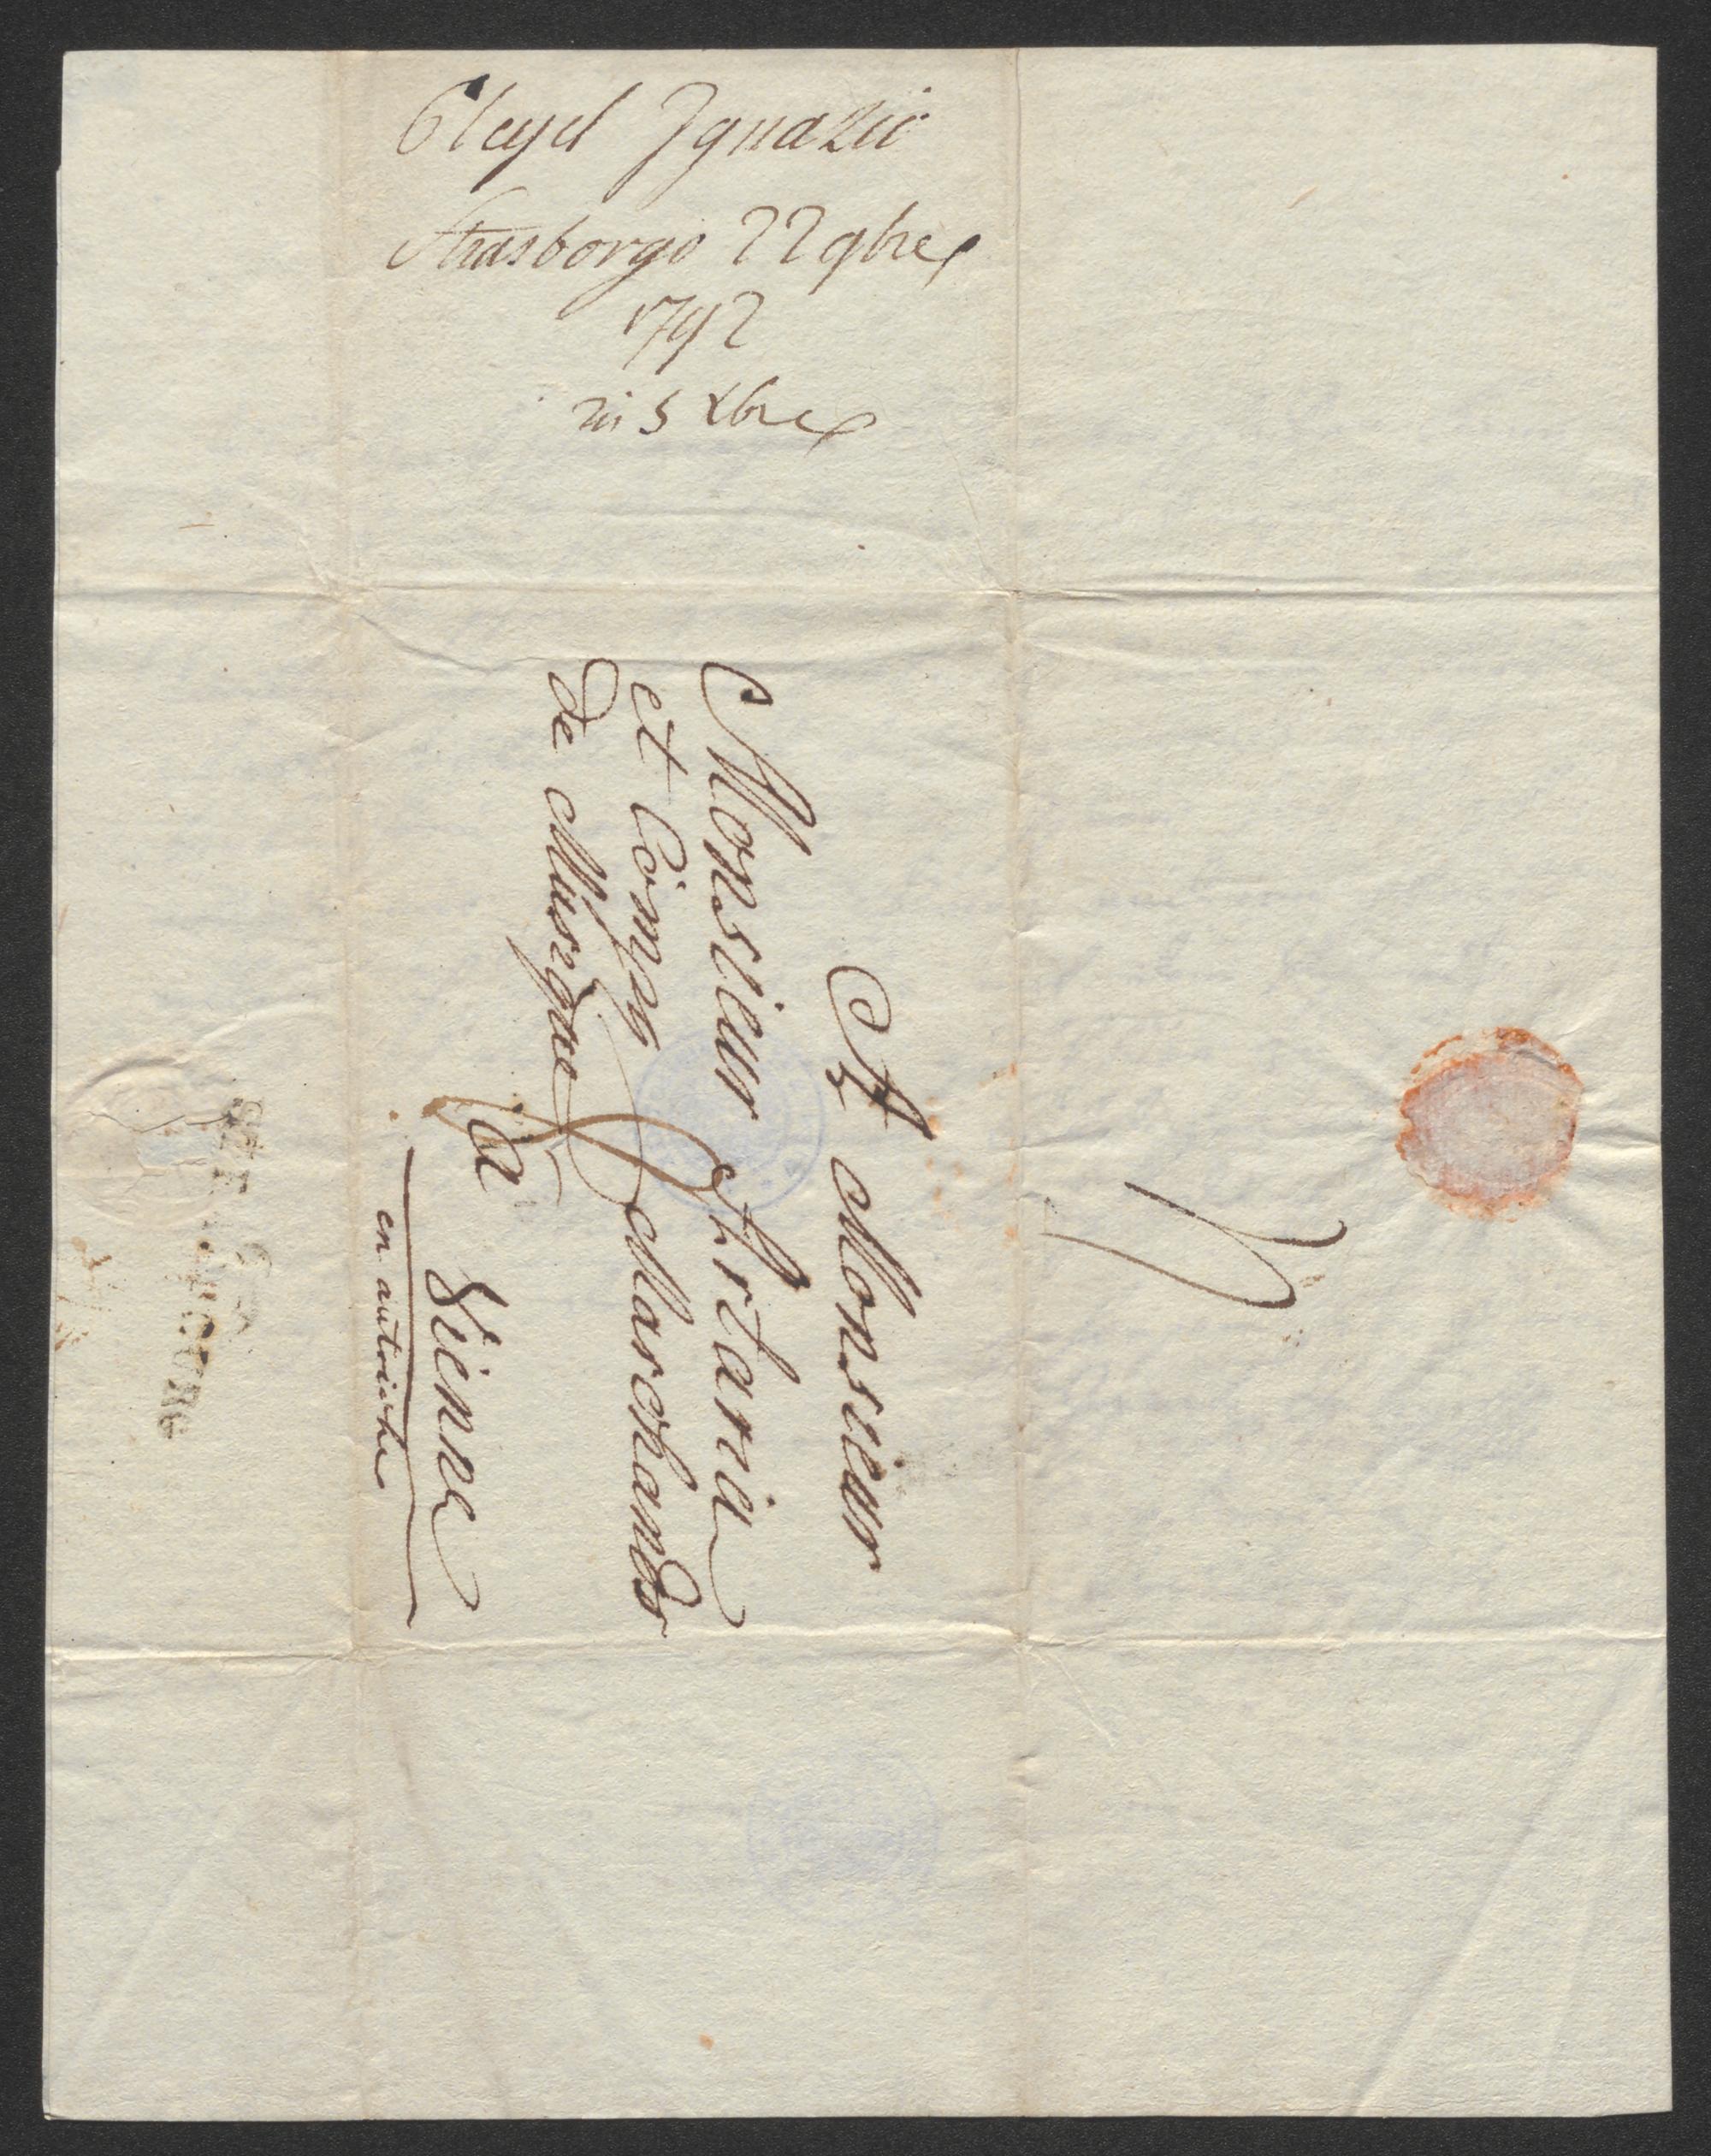 Pleyel Ignazio
Strasborgo 22 9bre
1792
in 5 Xbre
A Monsieur
Monsieur Artaria
et Comp. Marchands
de Musique
à Vienne
en autriche